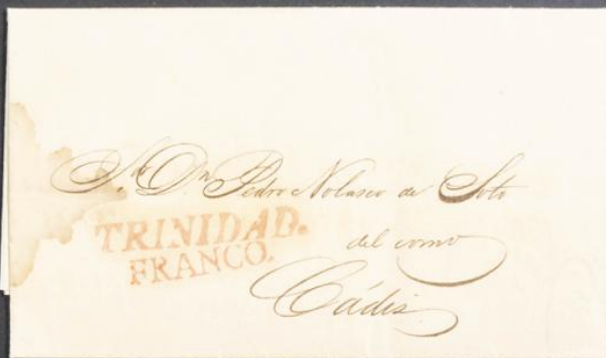 S.or D.n Pedro Nolasco de Soto
TRINIDAD.
FRANCO.
del comº
Cádiz